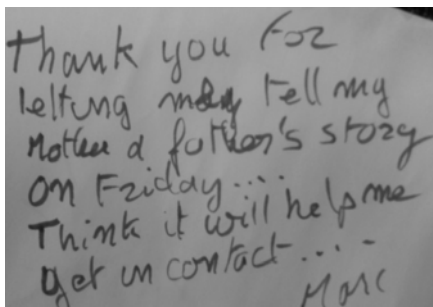 Thank you For
letting me tell my
Mother a father's story
on Friday....
Think it will help me
get in contact.....
Marc